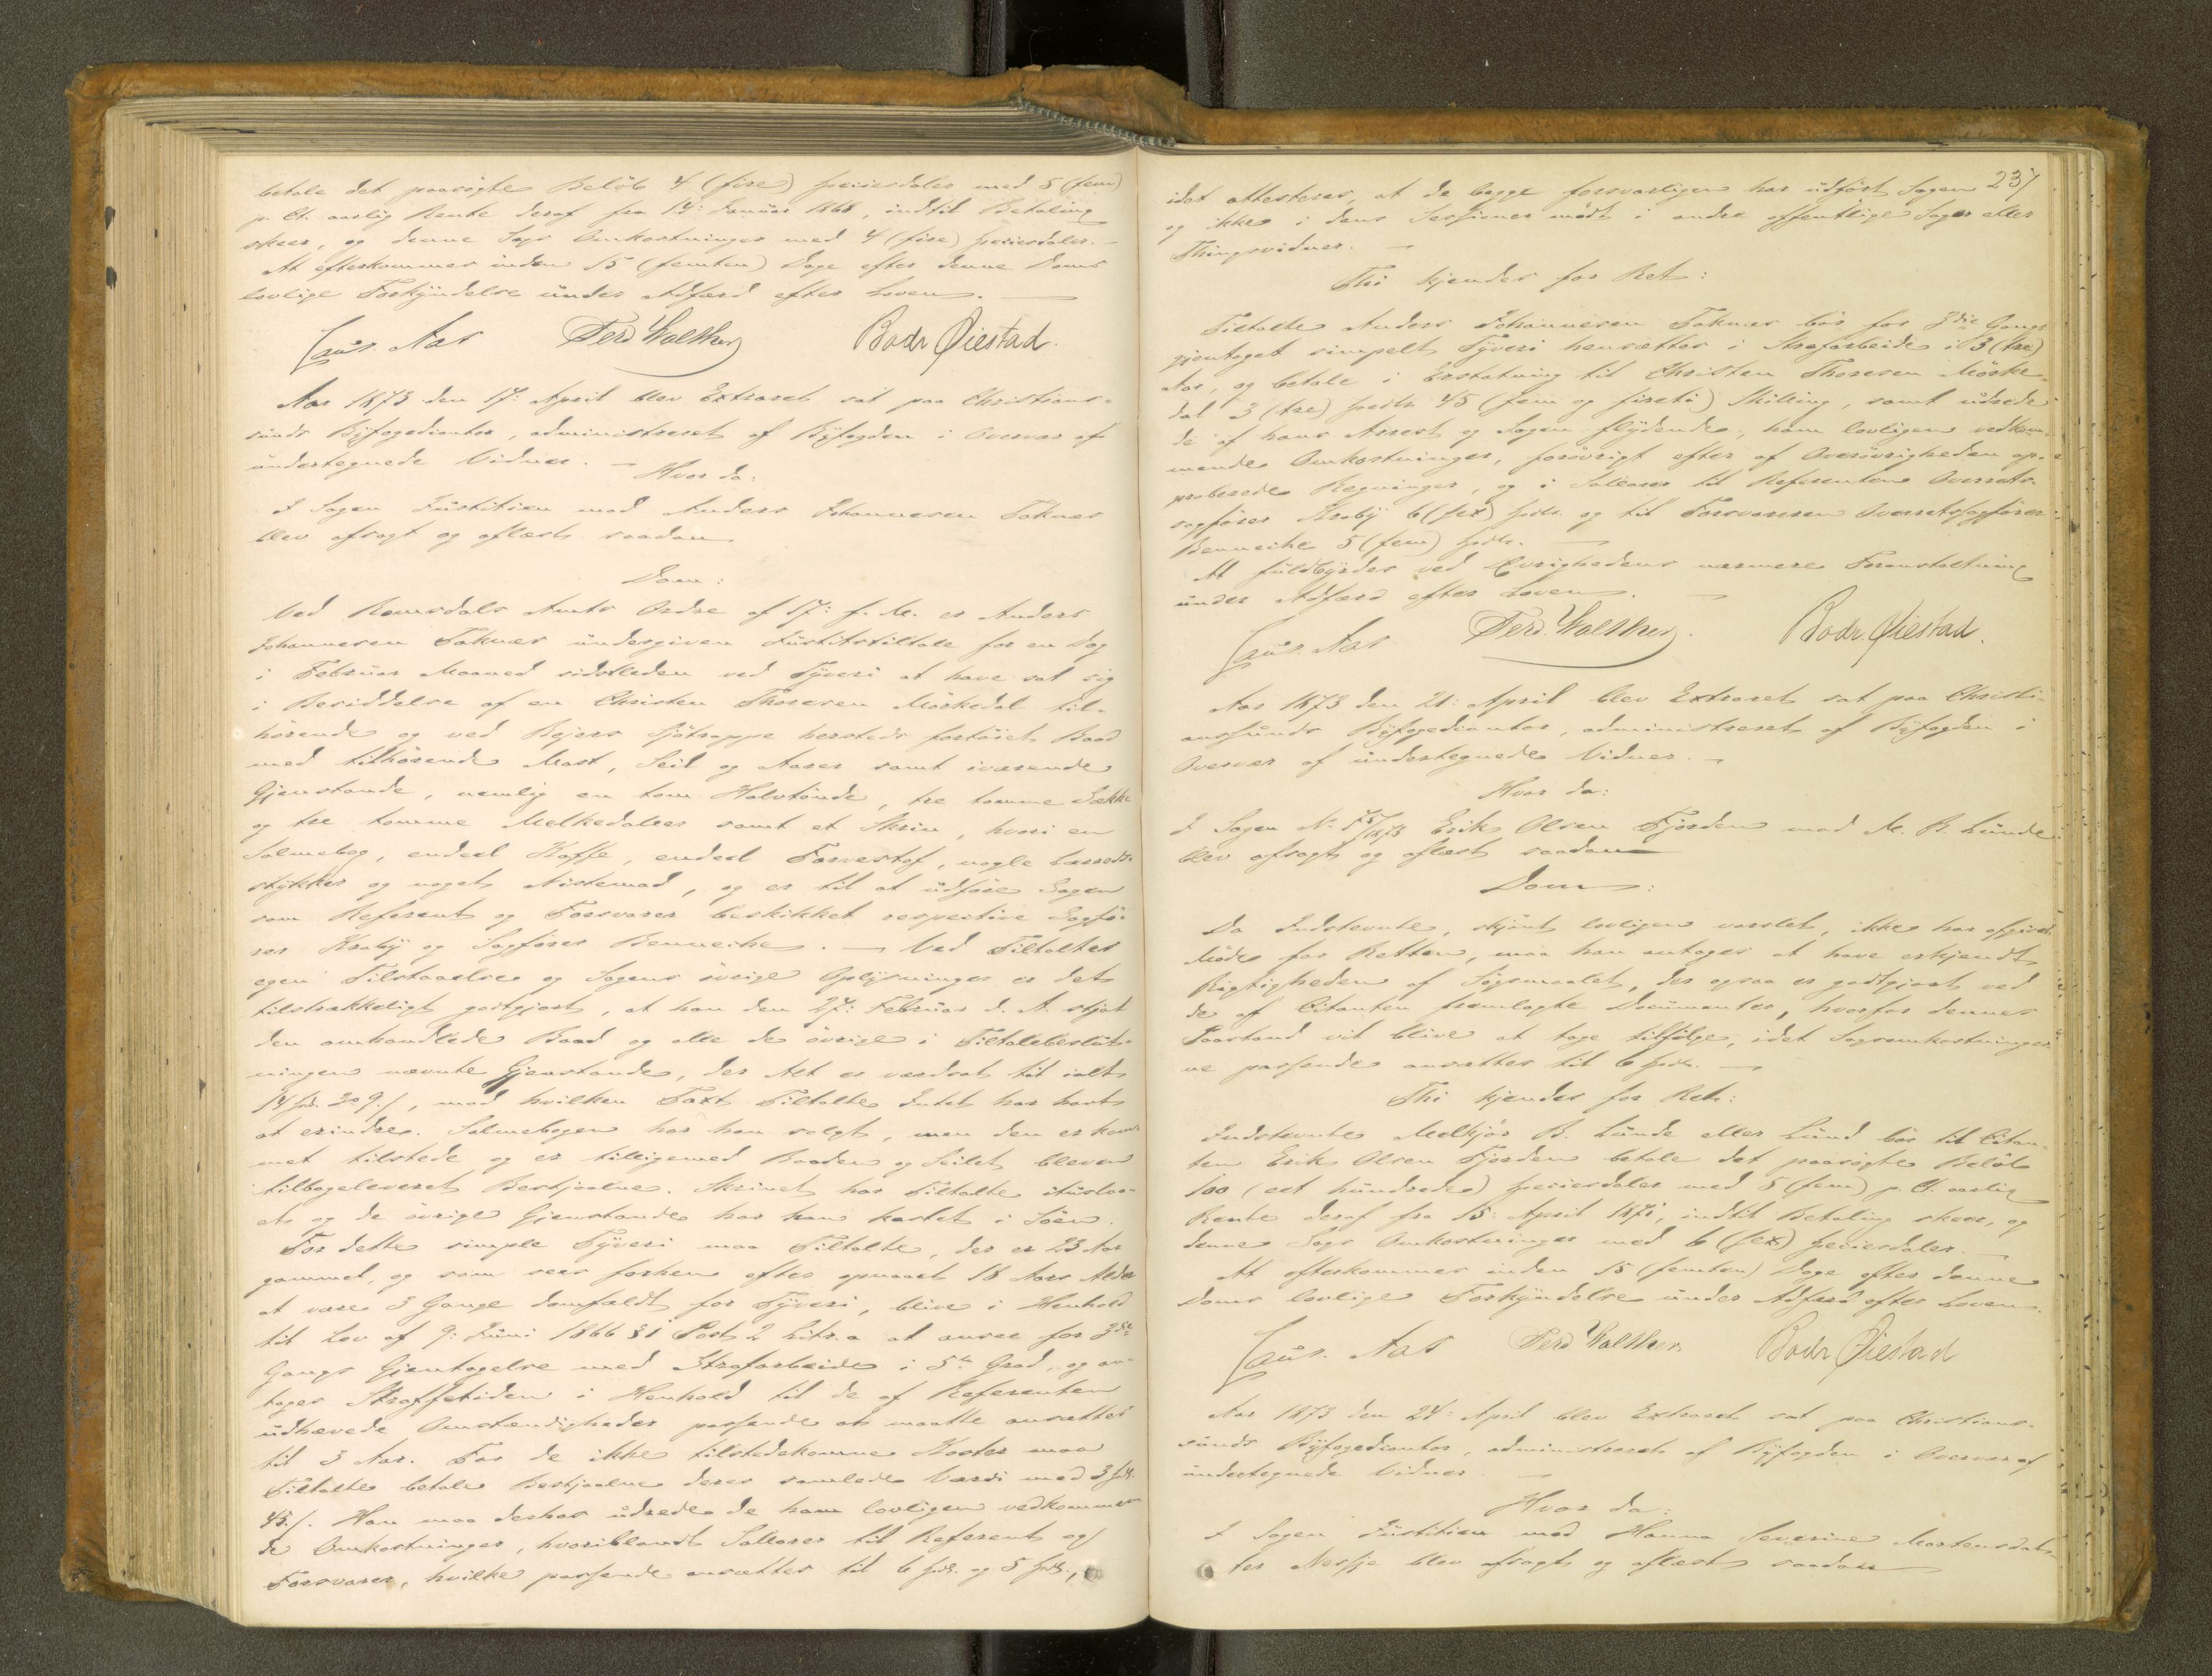 betale det paasøgte Beløb 4 (fire) Speciesdaler med 5 (fem)
p. Ct. aarlig Rente deraf fra 14: Januar 1868, indtil Betaling
skeer, og denne Sags Omkostninger med 4 (fire) Speciesdaler. –
At efterkommes inden 15 (femten) Dage efter denne Doms
lovlige Forkyndelse under Adfærd efter Loven. —
Caus. Aas Ferd Walther Bodr Øiestad.
Aar 1873 den 17: April blev Extraret sat paa Christians-
sunds Byfogedcontor, administreret af Byfogden i Overvær af
undertegnede Vidner. – Hvor da:
I Sagen Justitien mod Anders Johannesen Faknæs
blev afsagt og aflæst saadan
Dom:
Ved Romsdals Amts Ordre af 17: f. M. er Anders
Johannesen Faknæs undergiven Justitstiltale for en Dag
i Februar Maaned sidstleden ved Tyveri at have sat sig
i Besiddelse af en Christen Thoresen Mørkedal til-
hørende og ved Bejers Sjøtrappe hersteds fortøiet Baad
med tilhørende Mast, Seil og Aarer samt iværende
Gjenstande, nemlig en tom Halvtønde, tre tomme Sække
og tre tomme Melkedaller samt et Skrin, hvori en
Salmebog, endeel Kaffe, endeel Farvestof, nogle Lærreds-
stykker og noget Nistemad, og er til at udføre Sagen
som Referent og Forsvarer beskikket respective Sagfø-
rer Kraby og Sagfører Benneche. — Ved Tiltaltes
egen Tilstaaelse og Sagens øvrige Oplysninger er det
tilstrækkeligt godtgjort, at han den 27: Februar d. A. stjal
den omhandlede Baad og alle de øvrige i Tiltalebeslut-
ningen nævnte Gjenstande, der Alt er værdsat til ialt
14 Spd. 9 s, mod hvilken Taxt Tiltalte Intet har havt
at erindre. Salmebogen har han solgt, men den er kom-
met tilstede og er tilligemed Baaden og Seilet bleven
tilbageleveret Bestjaalne. Skrinet har Tiltalte itusla-
et og de øvrige Gjenstande har han kastet i Søen.
For dette simple Tyveri maa Tiltalte, der er 23 Aar
gammel, og som sees forhen efter opnaaet 18 Aars Alder
at være 3 Gange domfældt for Tyveri, blive i Henhold
til Lov af 9: Juni 1866 § 1 Post 2 Litr. a at ansee for 3die
Gangs Gjentagelse med Strafarbeide i 5te Grad, og an-
tages Straffetiden i Henhold til de af Referenten
udhævede Omstændigheder passende at maatte ansættes
til 3 Aar. For de ikke tilstedekomne Koster maa
Tiltalte betale Bestjaalne deres samlede Værdi med 3 Spd.
45 s. Han maa derhos udrede de ham lovligen vedkommen-
de Omkostninger, hvoriblandt Sallarer til Referent og
Forsvarer, hvilke passende ansættes til 6 Spd. og 5 Spd.,
237
idet attesteres, at de begge forsvarligen har udført Sagen
og ikke i dens Sessioner mødt i andre offentlige Sager eller
Thingsvidner. —
Thi kjendes for Ret:
Tiltalte Anders Johannesen Faknæs bør for 3die Gang
gjentaget simpelt Tyveri hensættes i Strafarbeide i 3 (tre)
Aar, og betale i Erstatning til Christen Thoresen Mørke-
dal 3 (tre) Spdlr. 45 (fem og fireti) Skilling, samt udrede
de af hans Arrest og Sagen flydende, ham lovligen vedkom-
mende Omkostninger, forøvrigt efter af Overøvrigheden ap-
proberede Regninger, og i Sallarer til Referenten Overrets-
sagfører Kraby 6 (sex) Spdlr. og til Forsvareren Overretssagfører
Benneche 5 (fem) Spdlr. —
At fuldbyrdes ved Øvrighedens nærmere Foranstaltning
under Adfærd efter Loven. —
Caus. Aas Ferd. Walther. Bodr. Øiestad.
Aar 1873 den 21: April blev Extraret sat paa Christi-
anssunds Byfogedcontor, administreret af Byfogden i
Overvær af undertegnede Vidner. –
Hvor da:
I Sagen No /1873 Erik Olsen Fjorden mod M. B. Lunde
blev afsagt og aflæst saadan
Dom:
Da Indstevnte, skjønt lovligen varslet, ikke har afgivet
Møde for Retten, maa han antages at have erkjendt
Rigtigheden af Søgsmaalet, der ogsaa er godtgjort ved
de af Citanten fremlagte Documenter, hvorfor dennes
Paastand vil blive at tage tilfølge, idet Sagsomkostninger-
ne passende ansættes til 6 Spdlr. —
Thi kjendes for Ret:
Indstevnte Melkjør B. Lunde eller Lund bør til Citan-
ten Erik Olsen Fjorden betale det paasøgte Beløb
100 (eet hundrede) Speciesdaler med 5 (fem) p. Ct. aarlig
Rente deraf fra 15: April 1871, indtil Betaling skeer, og
denne Sags Omkostninger med 6 (sex) Speciesdaler. —
At efterkommes inden 15 (femten) Dage efter denne
Doms lovlige Forkyndelse under Adfærd efter Loven.
Caus. Aas Ferd Walther. Bodr Øiestad
Aar 1873 den 24: April blev Extraret sat paa Christians-
sunds Byfogedcontor, administreret af Byfogden i Overvær af
undertegnede Vidner. —
Hvor da:
I Sagen Justitien mod Hanna Severine Mortensdat-
ter Nersje blev afsagt og aflæst saadan